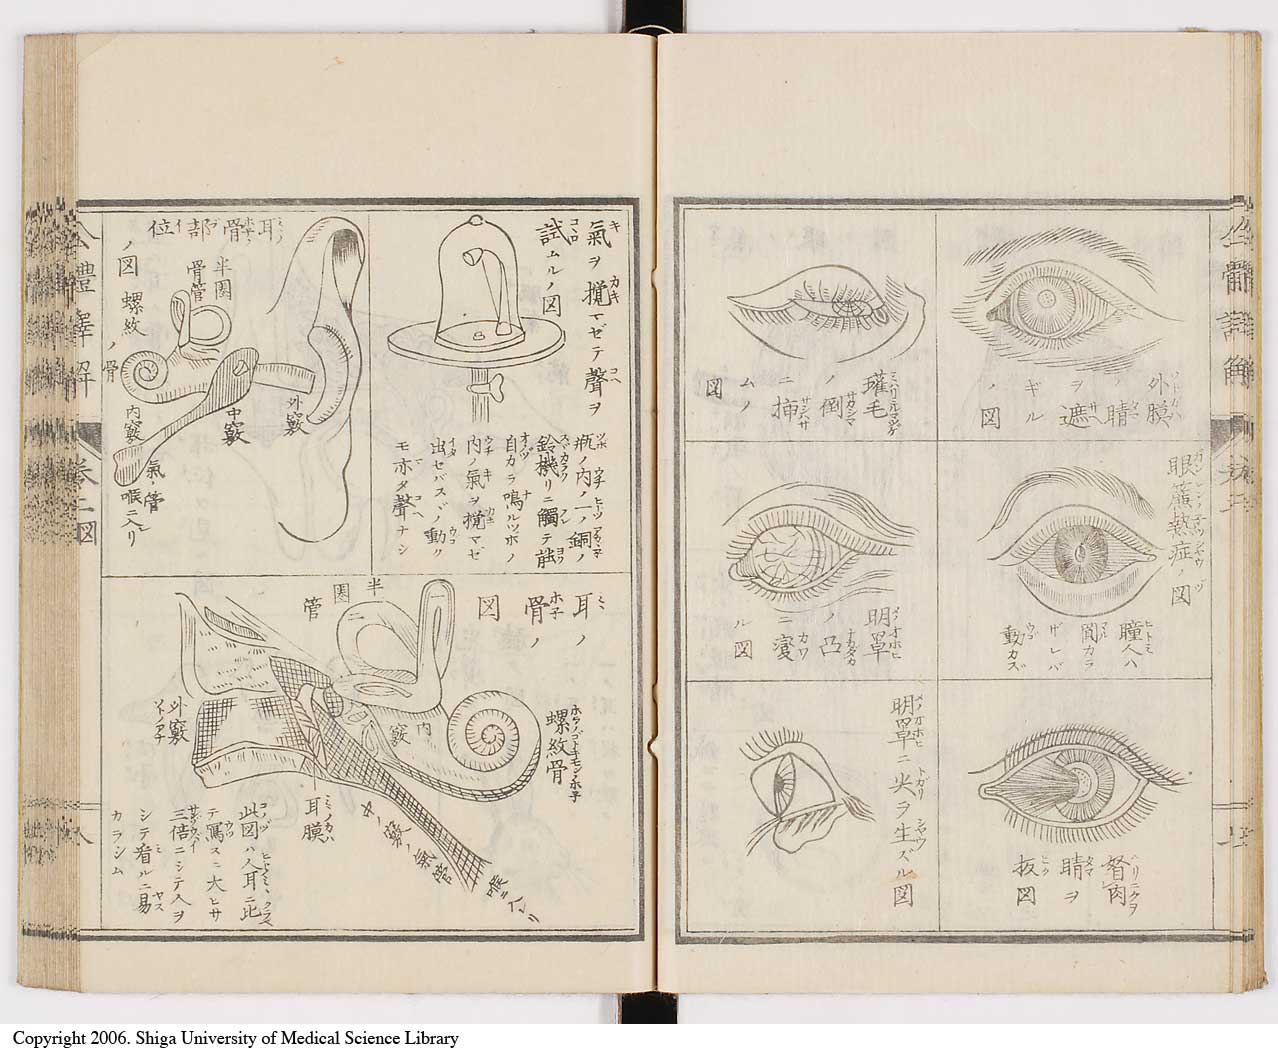 外膜ノ睛ヲ遮ギルノ図
睫毛ノ倒ニ挿ムノ図
眼簾熱症ノ図
瞳人ハ
闊カラ
ザレバ
動カズ
明罩ノ凸ニ変ル図
努肉ヲ
睛ヲ
抜図
明罩ニ尖ヲ生ズル図
氣ヲ攪マゼテ聲ヲ
試ムルノ図
瓶ノ内ノ一ノ銅ノ
鈴機リニ觸テ能
自カラ鳴ルツボノ
内ノ氣ヲ攪マゼ
出セバスベノ動ク
モ亦タ聲ナシ
耳骨部位
ノ図
半圏
骨管
螺紋ノ骨
外竅
中竅
内竅
氣ノ管
喉ニ入リ
耳ノ骨ノ図
半圏管
螺紋骨
内竅
外竅
耳膜
中ノ竅ノ氣管
喉ニ入リ
此図ハ人耳ニ比
テ寫スニ大ヒサ
三倍ニシテ人ヲ
シテ看ルニ易
カラシム
卷二図
Copyright 2006. Shiga University of Medical Science Library